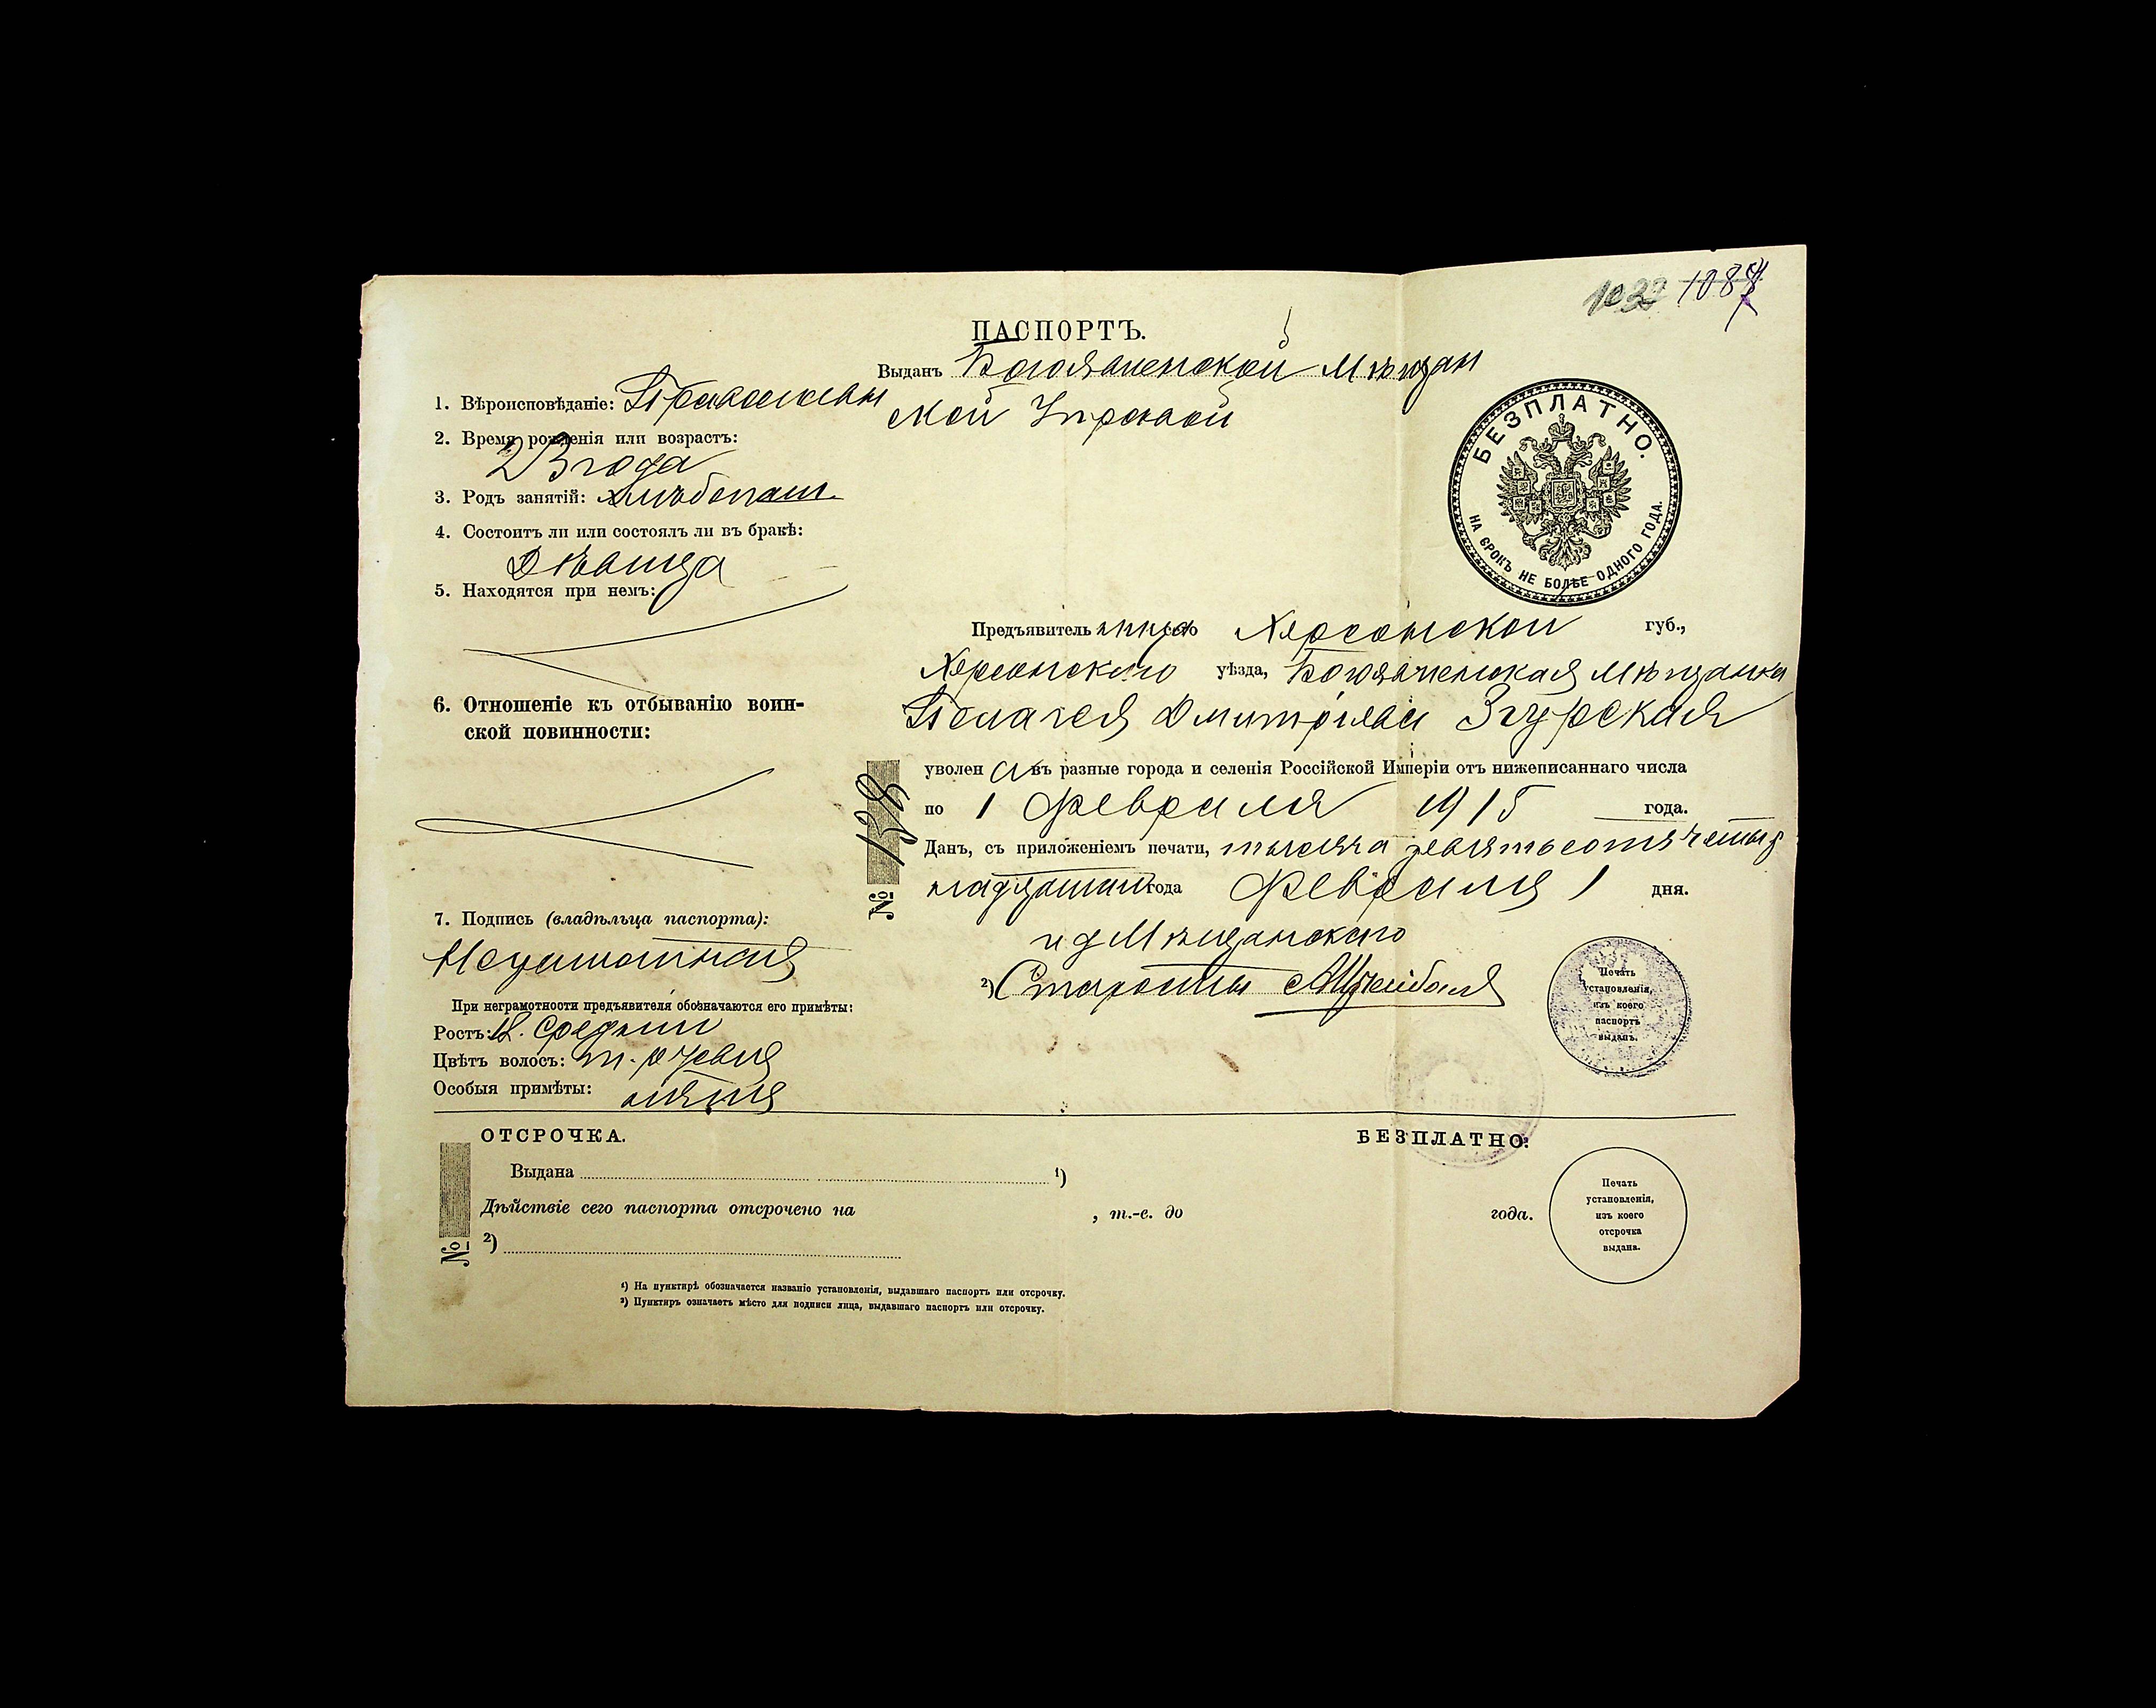 1032 1087
ПАСПОРТЪ.
Выданъ Богоявленской Мѣщан
ской Управой
1. Вѣроисповѣданіе: Православн
2. Время рожденія или возрастъ:
23 года
3. Родъ занятій: хлѣбопаш.
4. Состоитъ ли или состоялъ ли въ бракѣ:
Дѣвица
5. Находятся при немъ:
6. Отношеніе къ отбыванію воин-
ской повинности:
7. Подпись (владѣльца паспорта):
Неграмотная
При неграмотности предъявителя обозначаются его примѣты:
Ростъ: средній
Цвѣтъ волосъ: т. русые
Особыя примѣты:
БЕЗПЛАТНО.
НА СРОКЪ НЕ БОЛѢЕ ОДНОГО ГОДА.
Предъявительница сего Херсонской губ.,
Херсонскаго уѣзда, Богоявленская Мѣщанка
Пелагея Дмитріева Згурская
уволена въ разные города и селенія Россійской Имперіи отъ нижеписаннаго числа
по 1 Февраля 1915 года.
Данъ, съ приложеніемъ печати, тысяча девятьсотъ четыр
надцатаго года Февраля 1 дня.
№ 138
и д Мѣщанскаго
2) Старосты
Печать
установленія,
изъ коего
паспортъ
выданъ.
ОТСРОЧКА. БЕЗПЛАТНО:
Выдана 1)
Дѣйствіе сего паспорта отсрочено на , т.-е. до года.
2)
№
Печать
установленія,
изъ коего
отсрочка
выдана.
1) На пунктирѣ обозначается названіе установленія, выдавшаго паспортъ или отсрочку.
2) Пунктиръ означаетъ мѣсто для подписи лица, выдавшаго паспортъ или отсрочку.